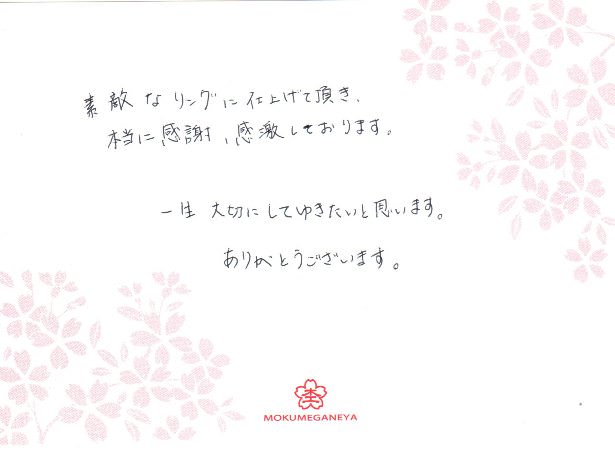 素敵なリングに仕上げて頂き、
本当に感謝、感激しております。
一生大切にしてゆきたいと思います。
ありがとうございます。
MOKUMEGANEYA